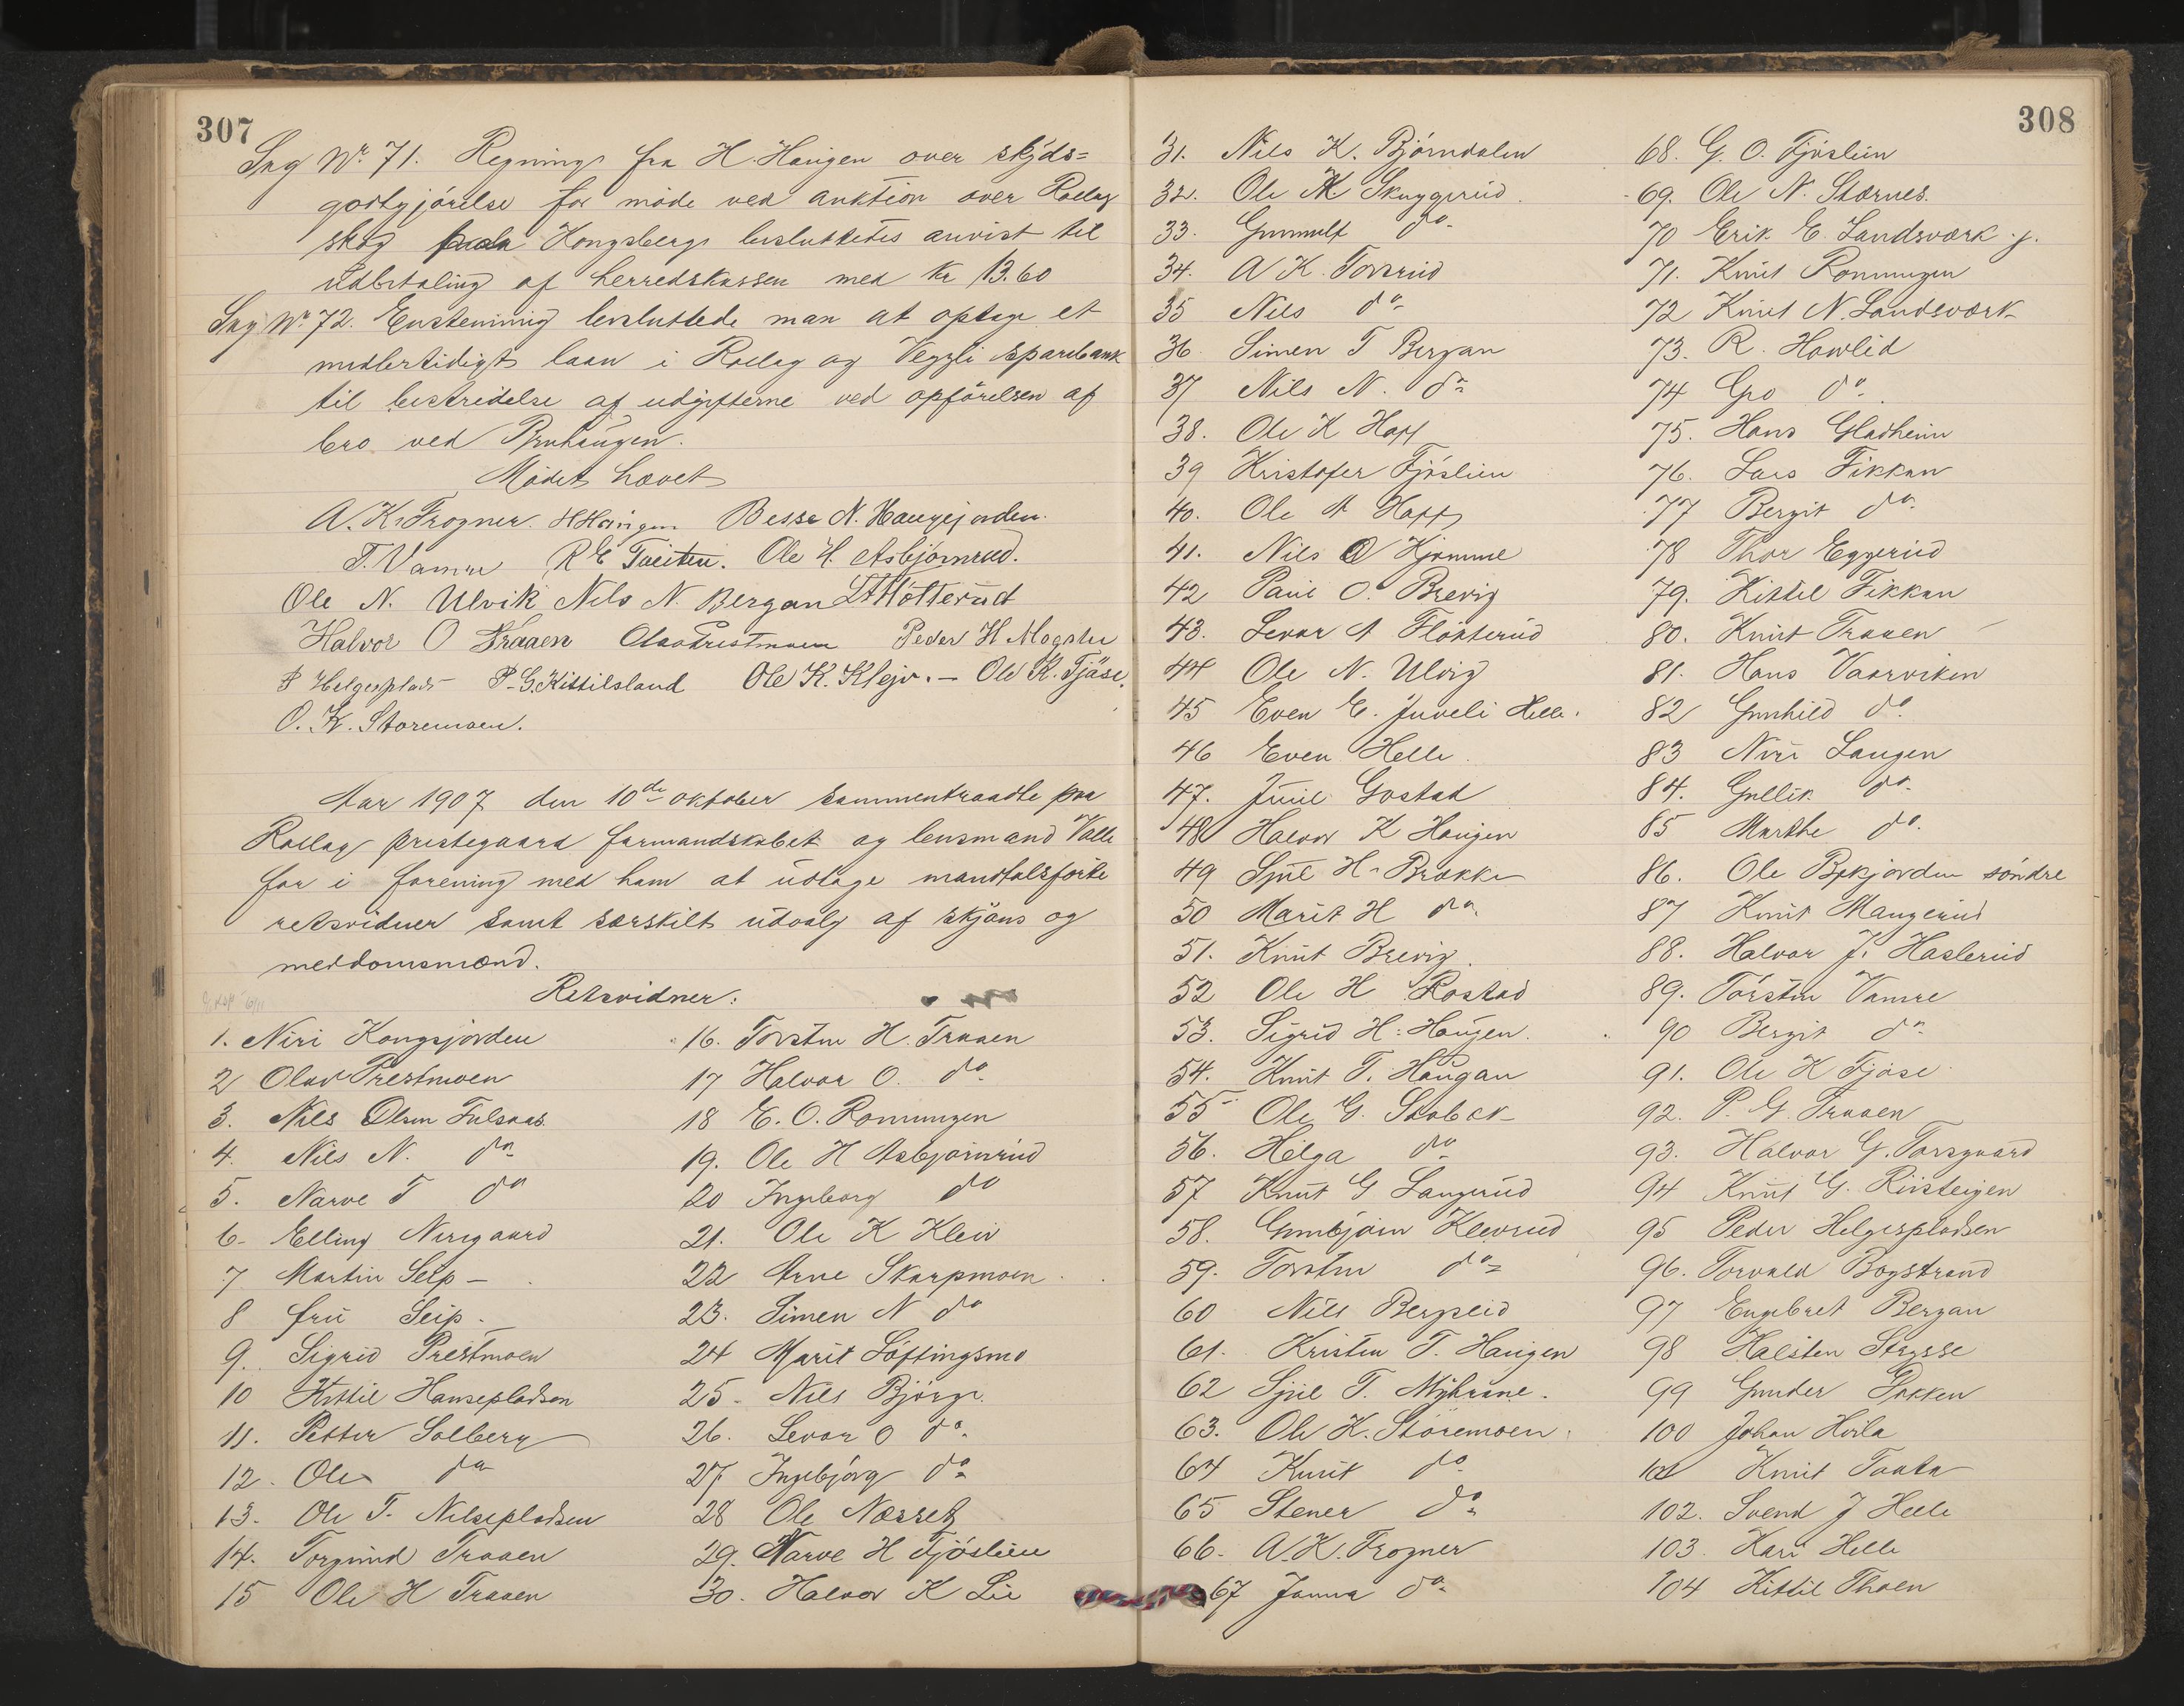 307
Sag Nr. 71. Regning fra H. Haugen over skyds=
godtgjörelse for möde ved auktion over Rollag
skog paa Kongsberg besluttedes anvist til
udbetaling af herredskassen med kr 13.60
Sag Nr. 72. Enstemmig besluttede man at optage et
midlertidigt laan i Rollag og Veggli sparebank
til bestridelse af udgifterne ved opförelsen af
bro ved Bruhaugen.
Mödet hævet
A. K. Frogner. H Haugen Besse N. Haugejorden.
T. Vamre R E Tveiten. Ole H. Asbjörnrud.
Ole N. Ulvik Nils N. Bergan
Halvor O Traaen Olav Prestmoen Peder H Mogstu
P Helgesplads P. G. Kittilsland Ole K. Kleiv. – Ole K. Fjöse.
O. K. Storemoen.
Aar 1907 den 10de oktober sammentraadte paa
Rollag prestegaard formandskabet og lensmand Valle
for i forening med ham at udtage mandtalsförte
retsvidner samt særskilt udvalg af skjöns og
meddomsmænd.
Retsvidner:
1. Niri Kongsjorden
2 Olav Prestmoen
3. Nils Olsen Fulsaas
4. Nils N. do
5. Narve T do
6- Elling Nirsgaard
7 Martin Seip –
8 fru Seip.
9. Sigrid Prestmoen
10 Kittil Hansepladsen
11. Petter Solberg
12. Ole do
13. Ole T. Nilsepladsen
14. Torgrind Traaen
15 Ole H Traaen
16. Torsten H. Traaen
17 Halvor O. do
18 E. O. Romungen
19. Ole H Asbjörnrud
20 Ingeborg do
21. Ole K Kleiv
22 Arne Skarpmoen
23. Simen N do
24 Marit Löftingsmo
25- Nils Björge
26. Levor O do
27 Ingebjörg do
28 Ole Nærset
29. Narve H Fjöslien
30. Halvor K Lie
308
31. Nils K. Björndalen
32. Ole K. Skuggerud
33. Gunnulf do
34. A K. Torsrud
35 Nils do
36. Simen T Bergan
37 Nils N. do
38. Ole K Hoff
39 Kristofer Fjöslien
40. Ole A Hoff
41. Nils O Kjomme
42 Paul O. Brevig
43. Levor A Flötterud
44 Ole N. Ulvig
45 Even E. Juveli Helle.
46 Even Helle
47. Juul Gvstad
48 Halvor K Haugen
49 Sjul H. Brekke
50 Marit H do
51. Knut Brevig.
52 Ole H Rostad
53. Sigrid H. Haugen.
54. Knut T. Haugan
55 Ole G. Skobek
56. Helga do
57 Knut G Langerud
58. Gunbjörn Klevrud
59. Torsten do
60 Nils Bergseid
61. Kristen T. Haugen
62 Sjul T. Myhrane.
63. Ole K. Storemoen.
64 Knut do
65 Stener do
66. A. K. Frogner
67 Janna do
68. G. O. Fjöslien
69. Ole N. Stærnes.
70 Erik E. Landsværk j.
71. Knut Romungen
72 Knut N. Landsværk
73. R. Howlid
74 Gro do
75. Hans Gladheim
76. Lars Fikkan
77 Bergit do
78 Thor Eggerud
79. Kittil Fikkan
80. Knut Traaen
81. Hans Vaarviken
82 Gunhild do
83 Niri Laugen
84. Gullik do
85 Marthe do
86. Ole Bekjorden söndre
87 Knut Maugerud
88. Halvor J. Haslerud
89. Torsten Vamre
90 Bergit do
91. Ole K Fjöse
92. P. G. Traaen
93. Halvor G. Torsgaard
94 Knut G. Risteigen
95 Peder Helgespladsen
96. Torvald Bogstrand
97 Engebret Bergan
98 Halsten Strysse
99 Gunder Bekken
100 Johan Hvila
101 Knut Traata
102. Svend J Helle
103. Kari Helle
104 Kittil Thoen